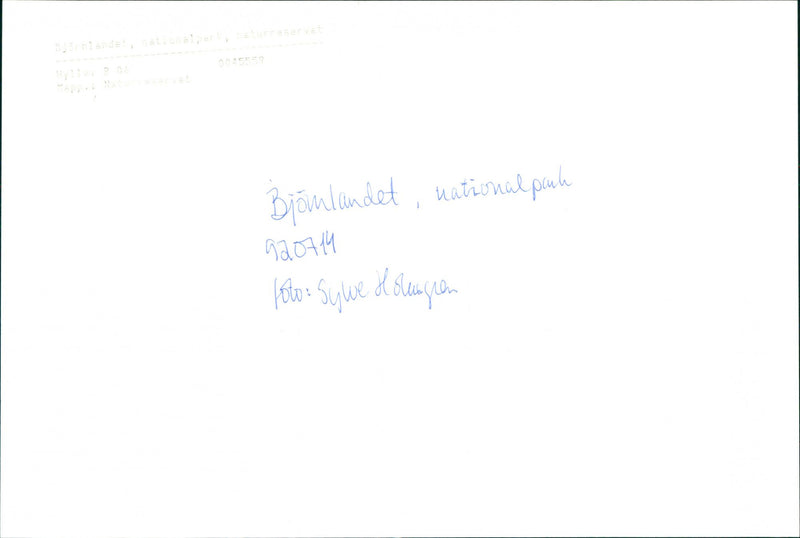 Björnlandet, nationalpark, naturreservat
Hylla: F 06 0045559
Mapp.: Naturreservat
Björnlandet, nationalpark
920714
foto: Sylve Holmgren